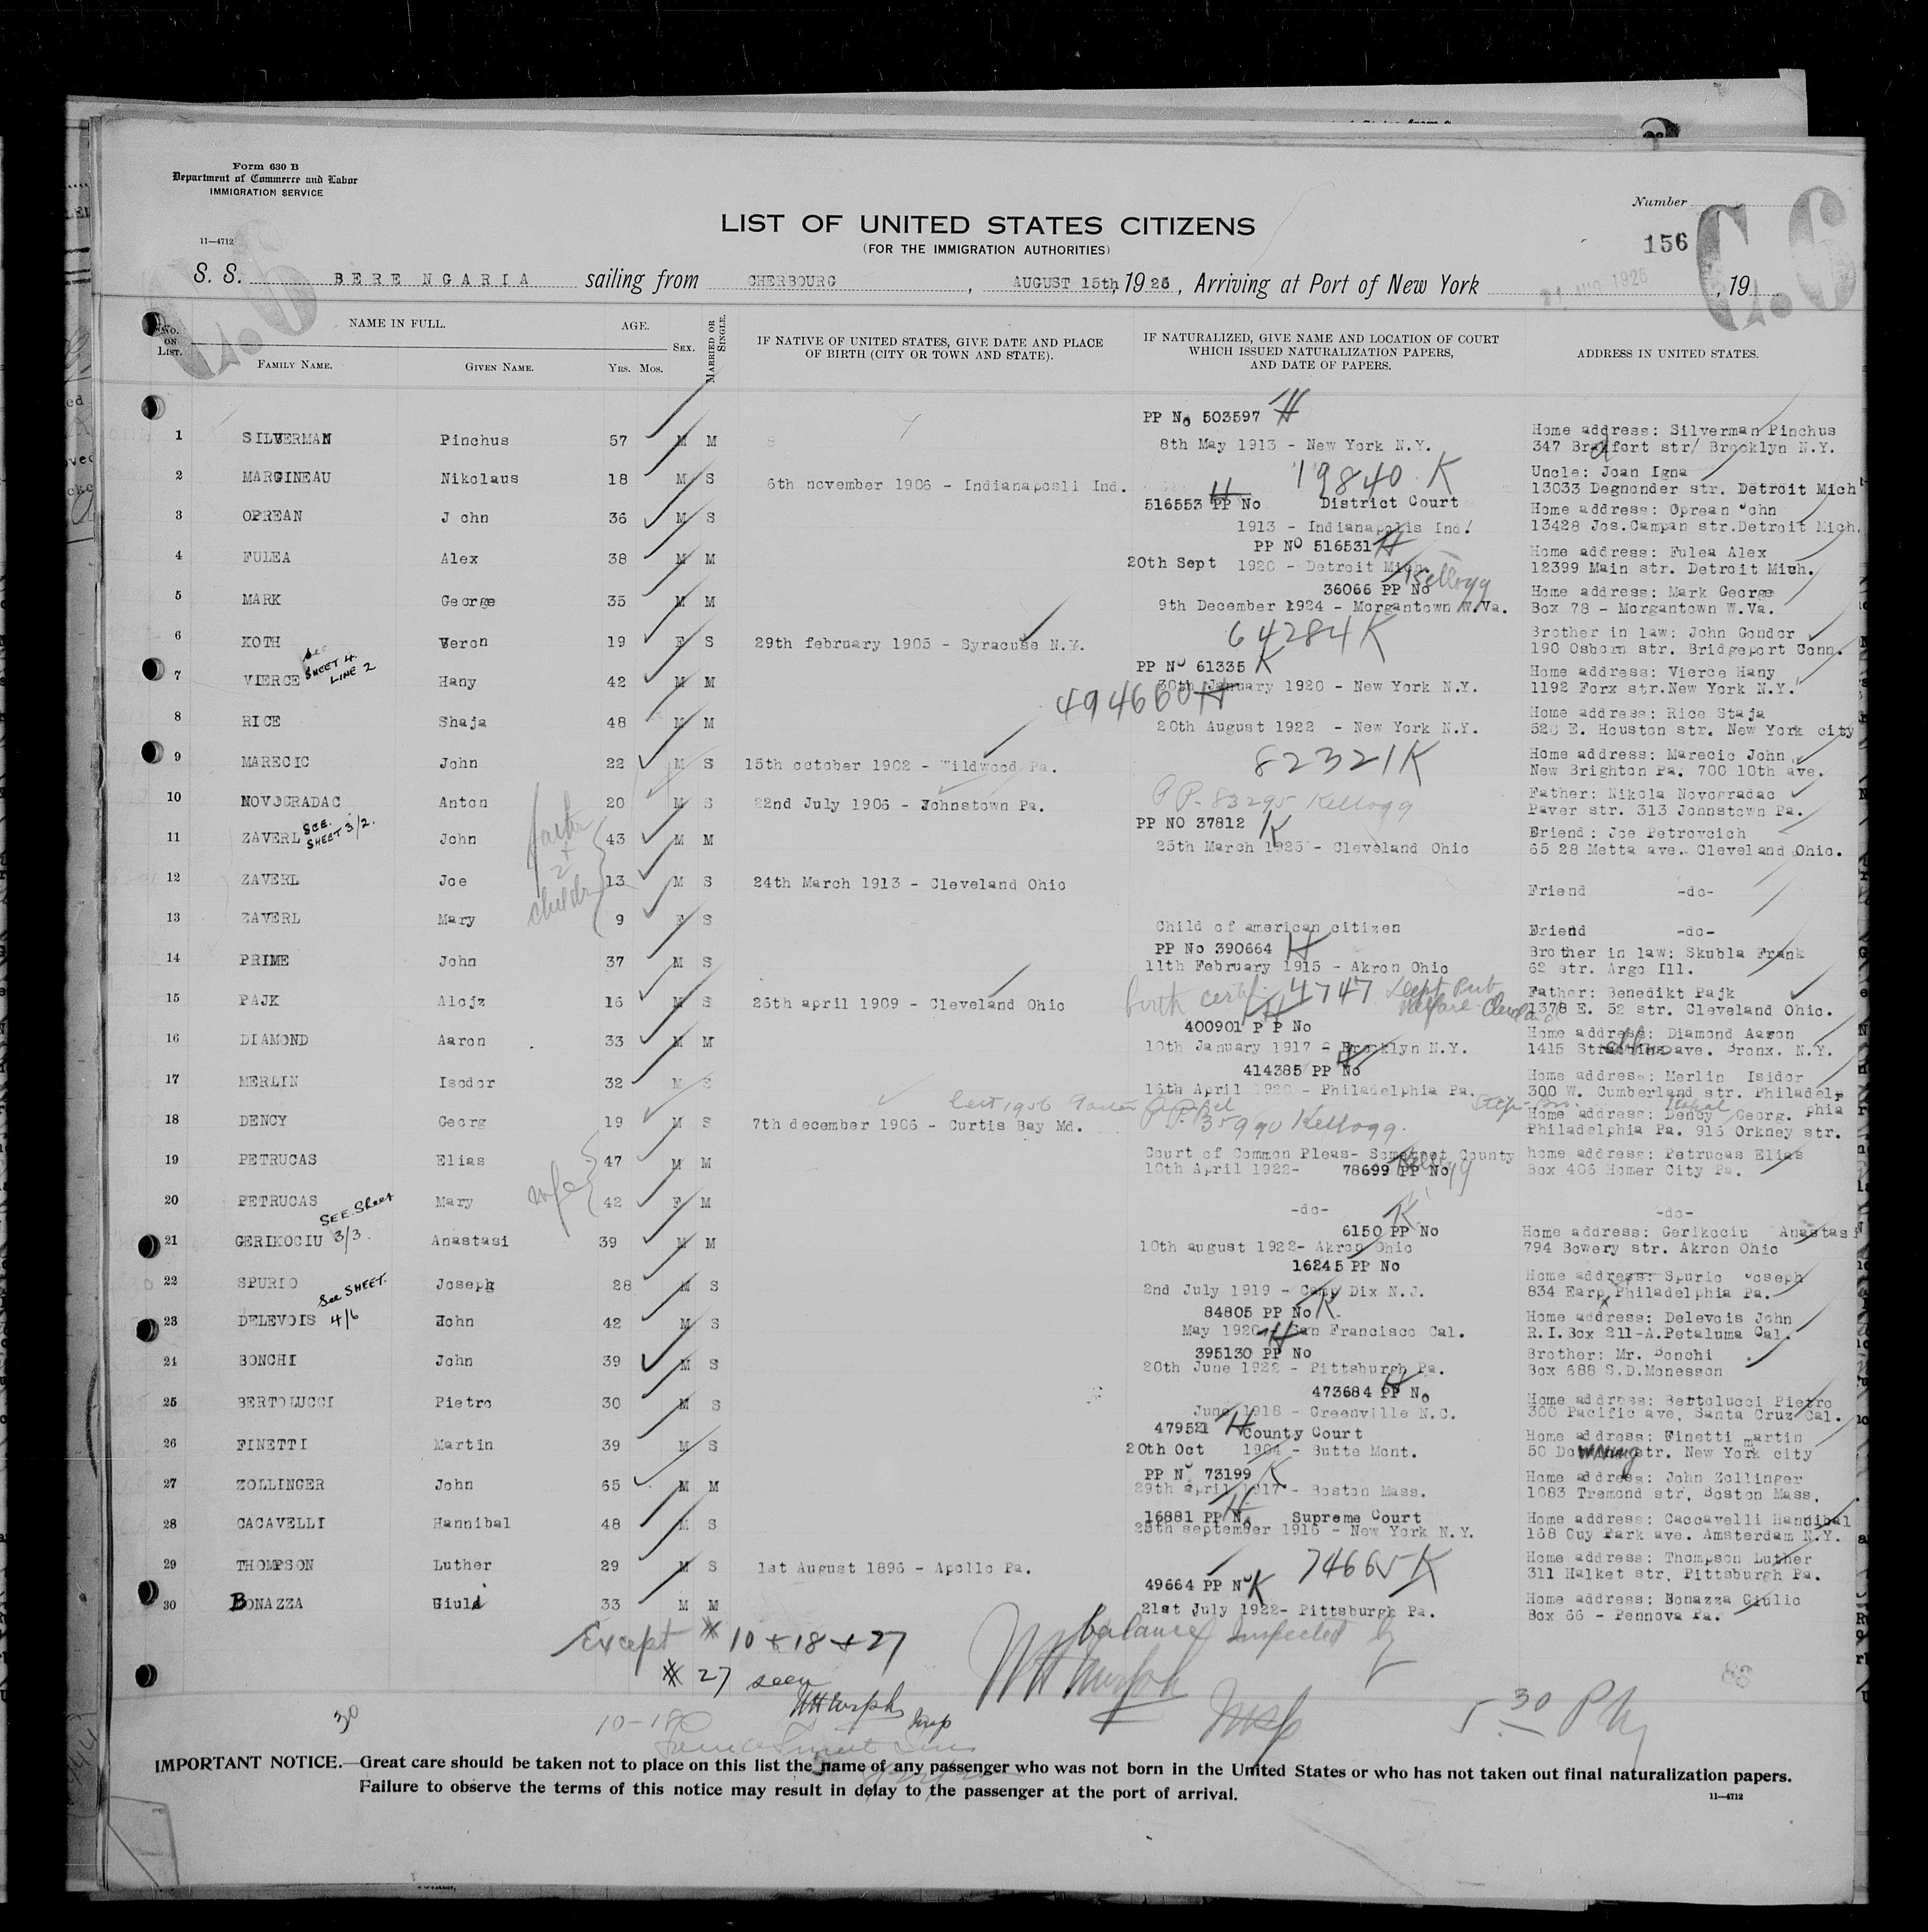 Form 630 B
Department of Commerce and Labor
IMMIGRATION SERVICE
11—4712
Number
156
LIST OF UNITED STATES CITIZENS
(FOR THE IMMIGRATION AUTHORITIES)
S. S. BERE NGARIA sailing from CHERBOURG, AUGUST 15th, 1925, Arriving at Port of New York 21 AUG 1925, 19
No. ON LIST. NAME IN FULL. FAMILY NAME. GIVEN NAME. AGE. YRS. MOS. SEX. MARRIED OR SINGLE. IF NATIVE OF UNITED STATES, GIVE DATE AND PLACE OF BIRTH (CITY OR TOWN AND STATE). IF NATURALIZED, GIVE NAME AND LOCATION OF COURT WHICH ISSUED NATURALIZATION PAPERS, AND DATE OF PAPERS. ADDRESS IN UNITED STATES.
PP No 503597 H
1 SILVERMAN Pinchus 57 M M 8th May 1913 - New York N.Y. Home address: Silverman Pinchus
347 Bradfort str/ Brooklyn N.Y.
2 MARGINEAU Nikolaus 18 M S 6th november 1906 - Indianaposli Ind. 19840 K Uncle: Joan Igna
13033 Degnonder str. Detroit Mich
516553 PP No District Court
3 OPREAN J ohn 36 M S 1913 - Indianapolis Ind. Home address: Oprean John
13428 Jos.Campan str.Detroit Mich.
PP NO 516531 H
4 FULEA Alex 38 M M 20th Sept 1920 - Detroit Mich. Home address: Fulea Alex
12399 Main str. Detroit Mich.
36066 PP No Kellogg
5 MARK George 35 M M 9th December 1924 - Morgantown W.Va. Home address: Mark George
Box 78 - Morgantown W.Va.
6 KOTH Veron 19 F S 29th february 1905 - Syracuse N.Y. 64284 K Brother in law: John Gondor
190 Osborn str. Bridgeport Conn.
see SHEET 4. LINE 2
PP No 61335 K
7 VIERCE Hany 42 M M 30th January 1920 - New York N.Y. Home address: Vierce Hany
1192 Forx str.New York N.Y.
494660 H
8 RICE Shaja 48 M M 20th August 1922 - New York N.Y. Home address: Rice Staja
520 E. Houston str. New York city
9 MARECIC John 22 M S 15th october 1902 - Wildwood Pa. 82321 K Home address: Marecic John
New Brighton Pa. 700 10th ave.
10 NOVOGRADAC Anton 20 M S 22nd July 1906 - Johnstown Pa. PP-83295 Kellogg Father: Nikola Novogradac
Paver str. 313 Johnstown Pa.
SEE. SHEET 3/2.
PP NO 37812 K
11 ZAVERL John 43 M M 25th March 1925 - Cleveland Ohio Friend: Joe Petrovcich
65 28 Metta ave. Cleveland Ohio.
12 ZAVERL Joe 13 M S 24th March 1913 - Cleveland Ohio Friend -do-
13 ZAVERL Mary 9 F S Child of american citizen Friend -do-
PP No 390664 H
14 PRIME John 37 M S 11th February 1915 - Akron Ohio Brother in law: Skubla Frank
62 str. Argo Ill.
15 PAJK Alojz 16 M S 26th april 1909 - Cleveland Ohio birth certif. 4747 Dept Pub Welfare - Cleveland Father: Benedikt Pajk
1378 E. 52 str. Cleveland Ohio.
400901 P P No
16 DIAMOND Aaron 33 M M 10th January 1917 - Brooklyn N.Y. Home address: Diamond Aaron
1415 ave. Bronx. N.Y.
414385 PP No
17 MERLIN Isodor 32 M S 16th April 1920 - Philadelphia Pa. Home address: Merlin Isidor
300 W. Cumberland str. Philadelphia
18 DENCY Georg 19 M S 7th december 1906 - Curtis Bay Md. P.P. 35990 Kellogg. Home address: Dency Georg.
Philadelphia Pa. 915 Orkney str.
19 PETRUCAS Elias 47 M M Court of Common Pleas- Somerset County home address: Petrucas Elias
10th April 1922- 78699 PP No Kellogg Box 406 Homer City Pa.
wife
20 PETRUCAS Mary 42 F M -do- -do-
SEE Sheet 3/3.
6150 PP No K
21 GERIKOCIU Anastasi 39 M M 10th august 1922- Akron Ohio Home address: Gerikociu Anastasi
794 Bowery str. Akron Ohio
16245 PP No
22 SPURIO Joseph 28 M S 2nd July 1919 - Camp Dix N.J. Home address: Spurio Joseph
834 Earp Philadelphia Pa.
See SHEET. 4/6
84805 PP No K.
23 DELEVOIS John 42 M S May 1920 - San Francisco Cal. Home address: Delevois John
R.I.Box 211-A.Petaluma Cal.
395130 PP No H
24 BONCHI John 39 M S 20th June 1922 - Pittsburgh Pa. Brother: Mr. Bonchi
Box 688 S.D.Monesson
473684 PP No
25 BERTOLUCCI Pietro 30 M S June 1918 - Greenville N.C. Home address: Bertolucci Pietro
300 Pacific ave, Santa Cruz Cal.
479521 H County Court
26 FINETTI Martin 39 M S 20th Oct 1904 - Butte Mont. Home address: Finetti martin
50 Downing str. New York city
PP No 73199 K
27 ZOLLINGER John 65 M M 29th april 1917 - Boston Mass. Home address: John Zollinger
1083 Tremond str, Boston Mass.
16881 PP No H Supreme Court
28 CACAVELLI Hannibal 48 M S 25th september 1916 - New York N.Y. Home address: Caccavelli Hannibal
168 Guy Park ave. Amsterdam N.Y.
29 THOMPSON Luther 29 M S 1st August 1896 - Apollo Pa. 74665 K Home address: Thompson Luther
311 Halket str, Pittsburgh Pa.
49664 PP No K
30 BONAZZA Giuli 33 M M 21st July 1922- Pittsburgh Pa. Home address: Bonazza Giulio
Box 66 - Pennova Pa.
Except # 10 + 18 + 27 balance Inspected by
# 27 seen
30 10-18 5 30 PM
IMPORTANT NOTICE.—Great care should be taken not to place on this list the name of any passenger who was not born in the United States or who has not taken out final naturalization papers.
Failure to observe the terms of this notice may result in delay to the passenger at the port of arrival.
11—4712